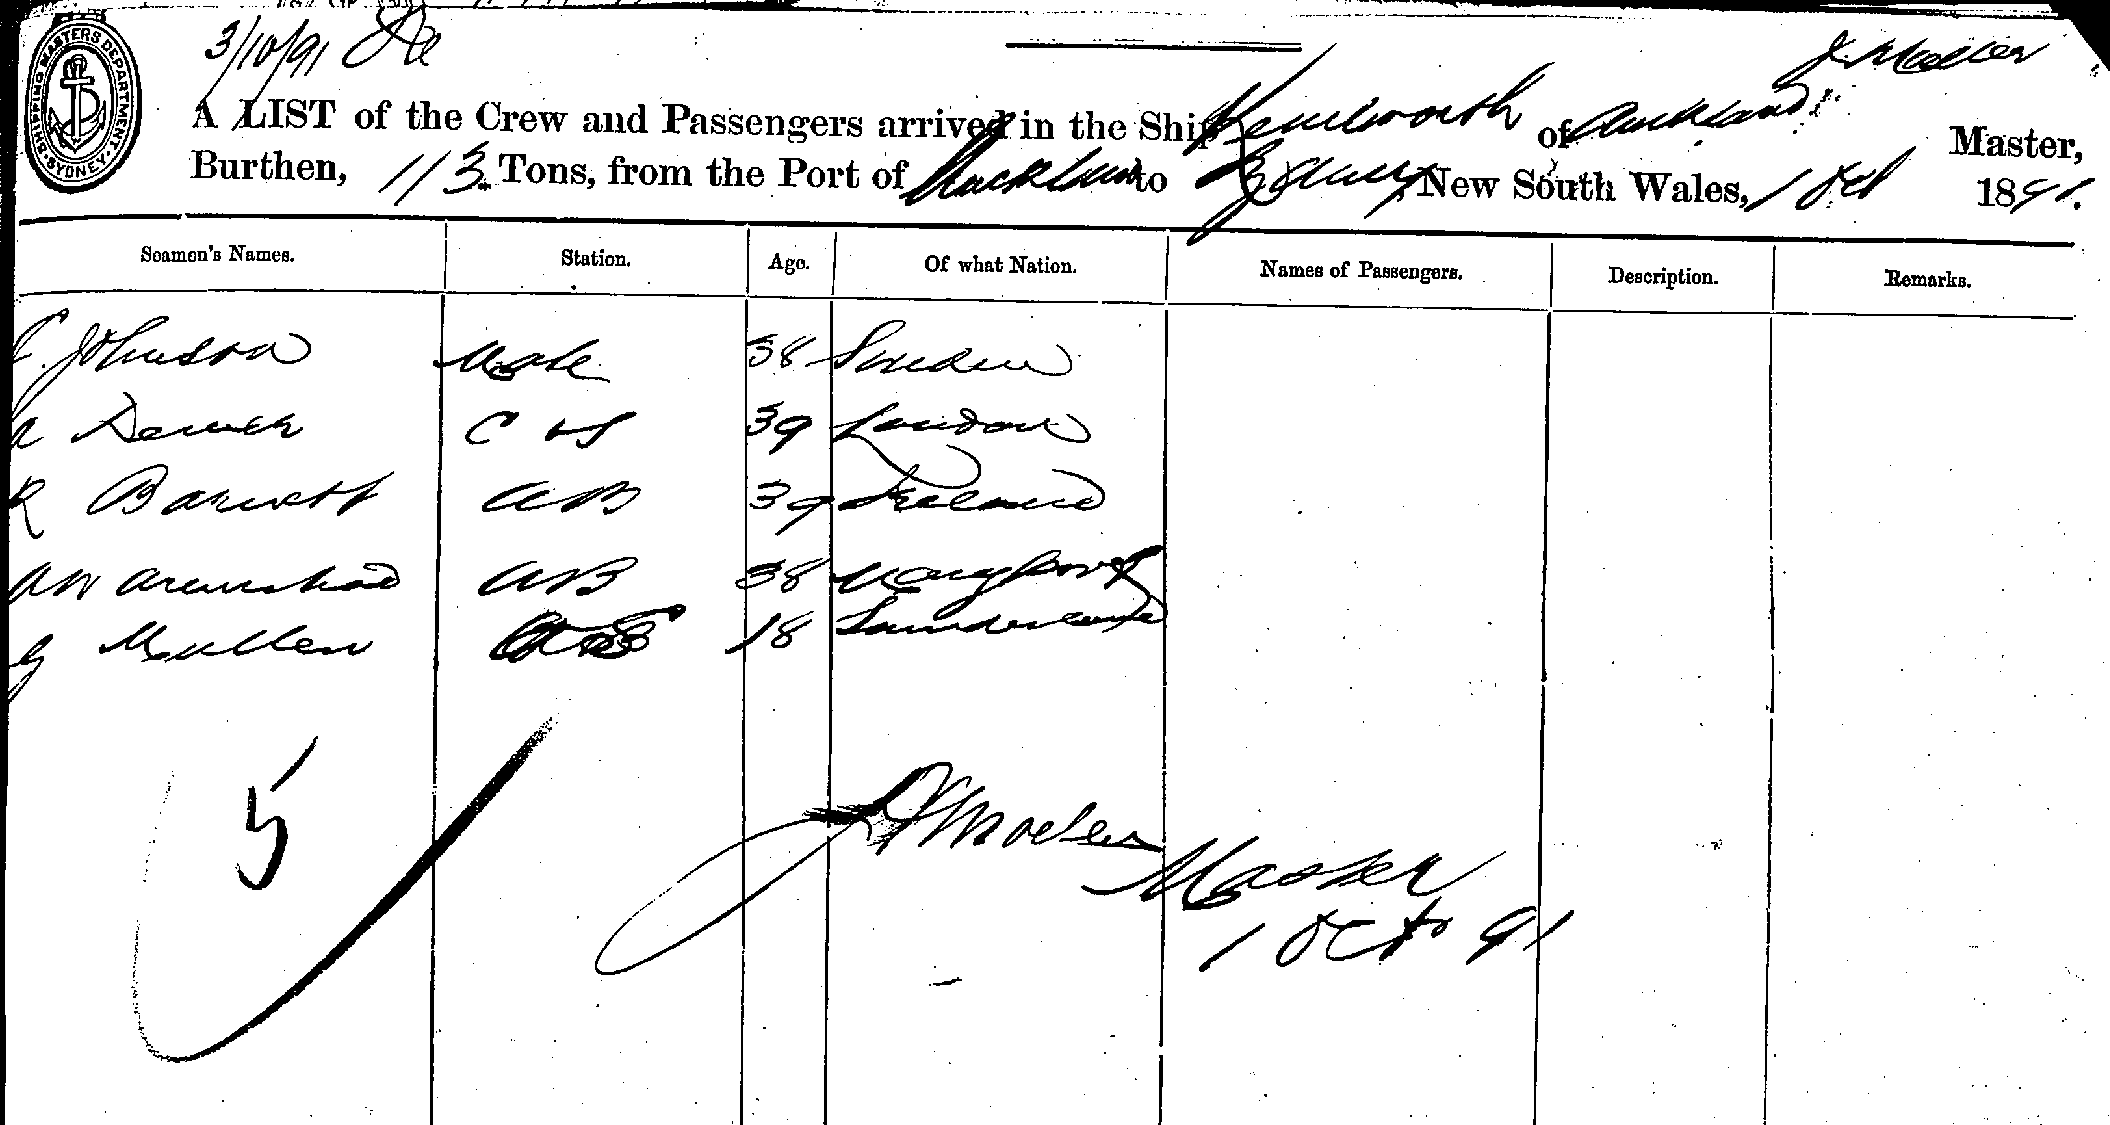 3/10/91
SHIPPING MASTERS DEPARTMENT. SYDNEY
J. Moller
A LIST of the Crew and Passengers arrived in the Ship Kenilworth of Auckland Master,
Burthen, 113 Tons, from the Port of Auckland to Sydney New South Wales, 1 Oct 1891.
Seamen's Names. Station. Age. Of what Nation. Names of Passengers. Description. Remarks.
Johnson Mate 38 Sweden
C & S 39 London
R Barnett AB 39 Ireland
AB 38
G Mullen 18 Sunderland
5
Moller
Master
1 Oct 91